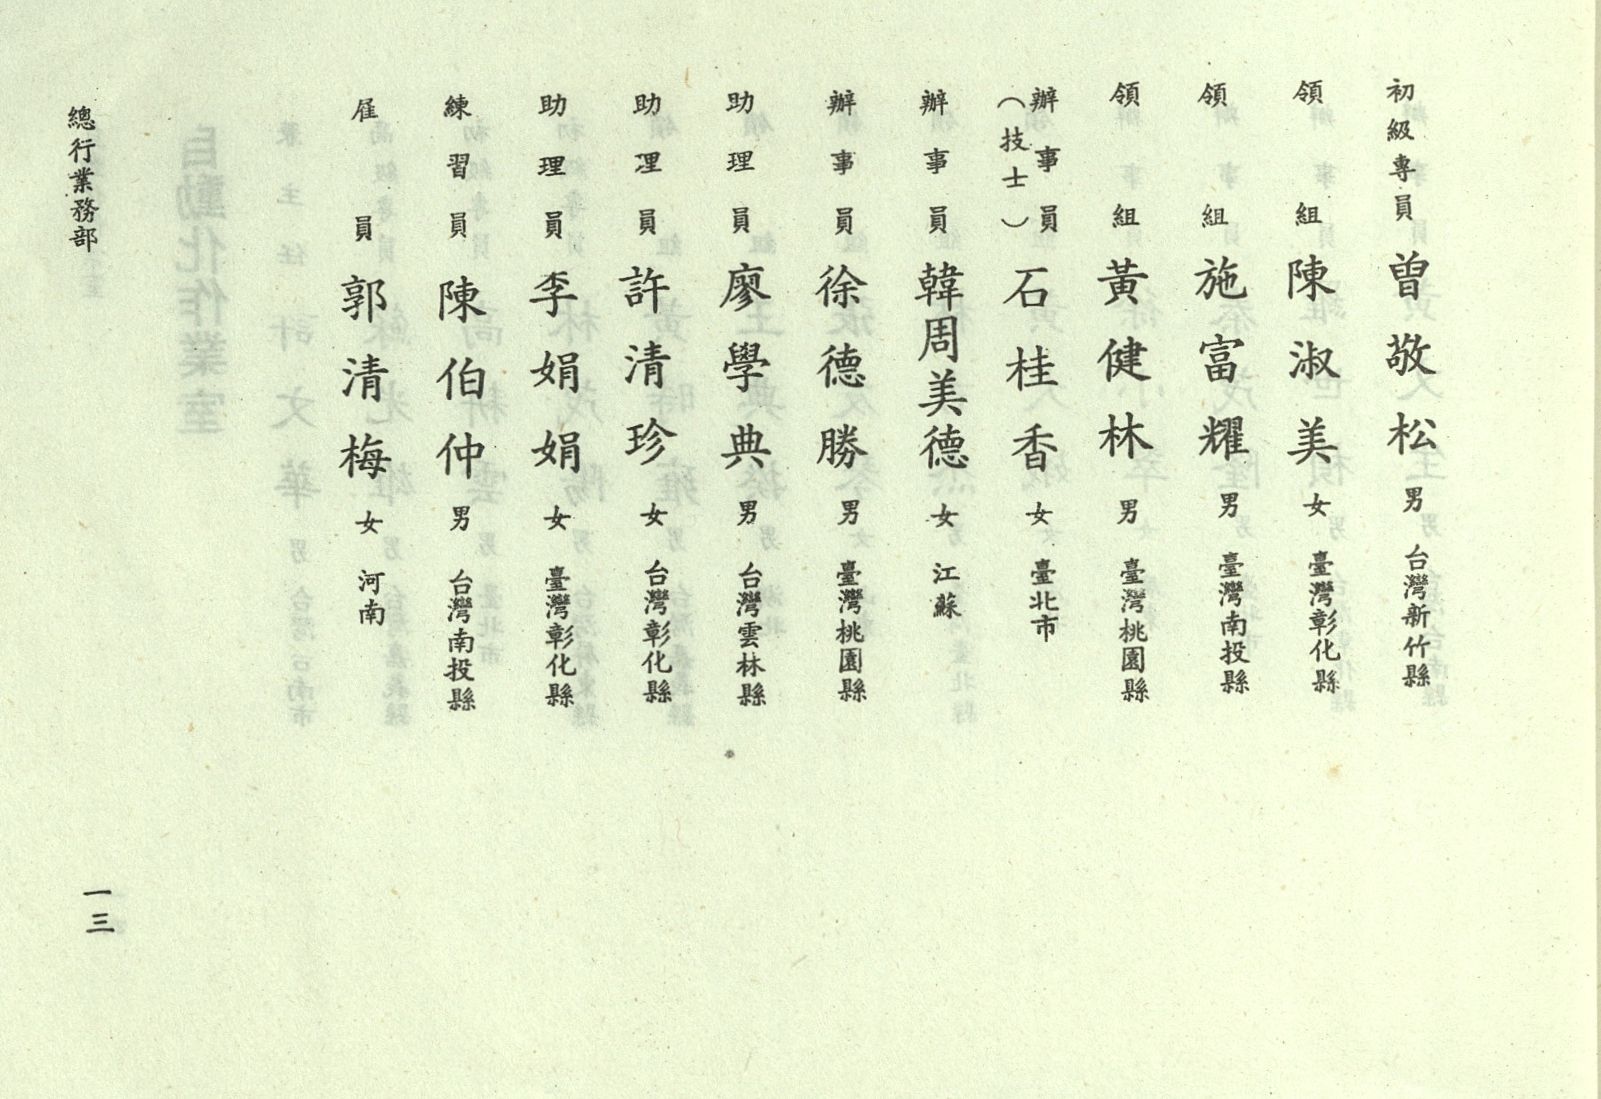 初級專員 曾敬松 男 台灣新竹縣
領組 陳淑美 女 臺灣彰化縣
領組 施富耀 男 臺灣南投縣
領組 黃健林 男 臺灣桃園縣
辦事員（技士） 石桂香 女 臺北市
辦事員 韓周美德 女 江蘇
辦事員 徐德勝 男 臺灣桃園縣
助理員 廖學典 男 台灣雲林縣
助理員 許清珍 女 台灣彰化縣
助理員 李娟娟 女 臺灣彰化縣
練習員 陳伯仲 男 台灣南投縣
雇員 郭清梅 女 河南
總行業務部
一三